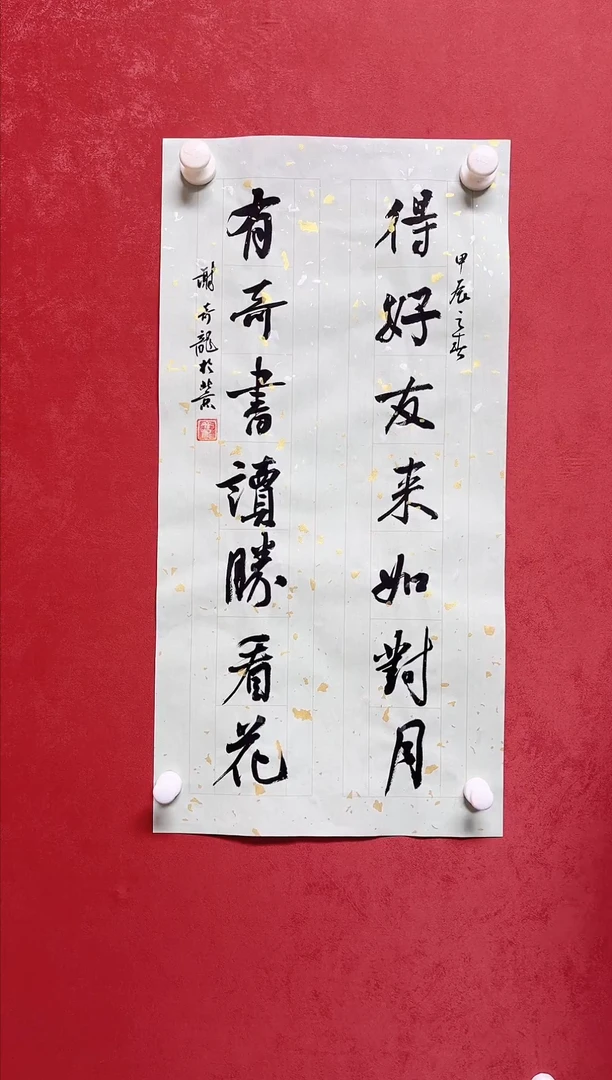 甲辰之春
得好友来如對月
有奇書讀勝看花
謝奇龍於黄